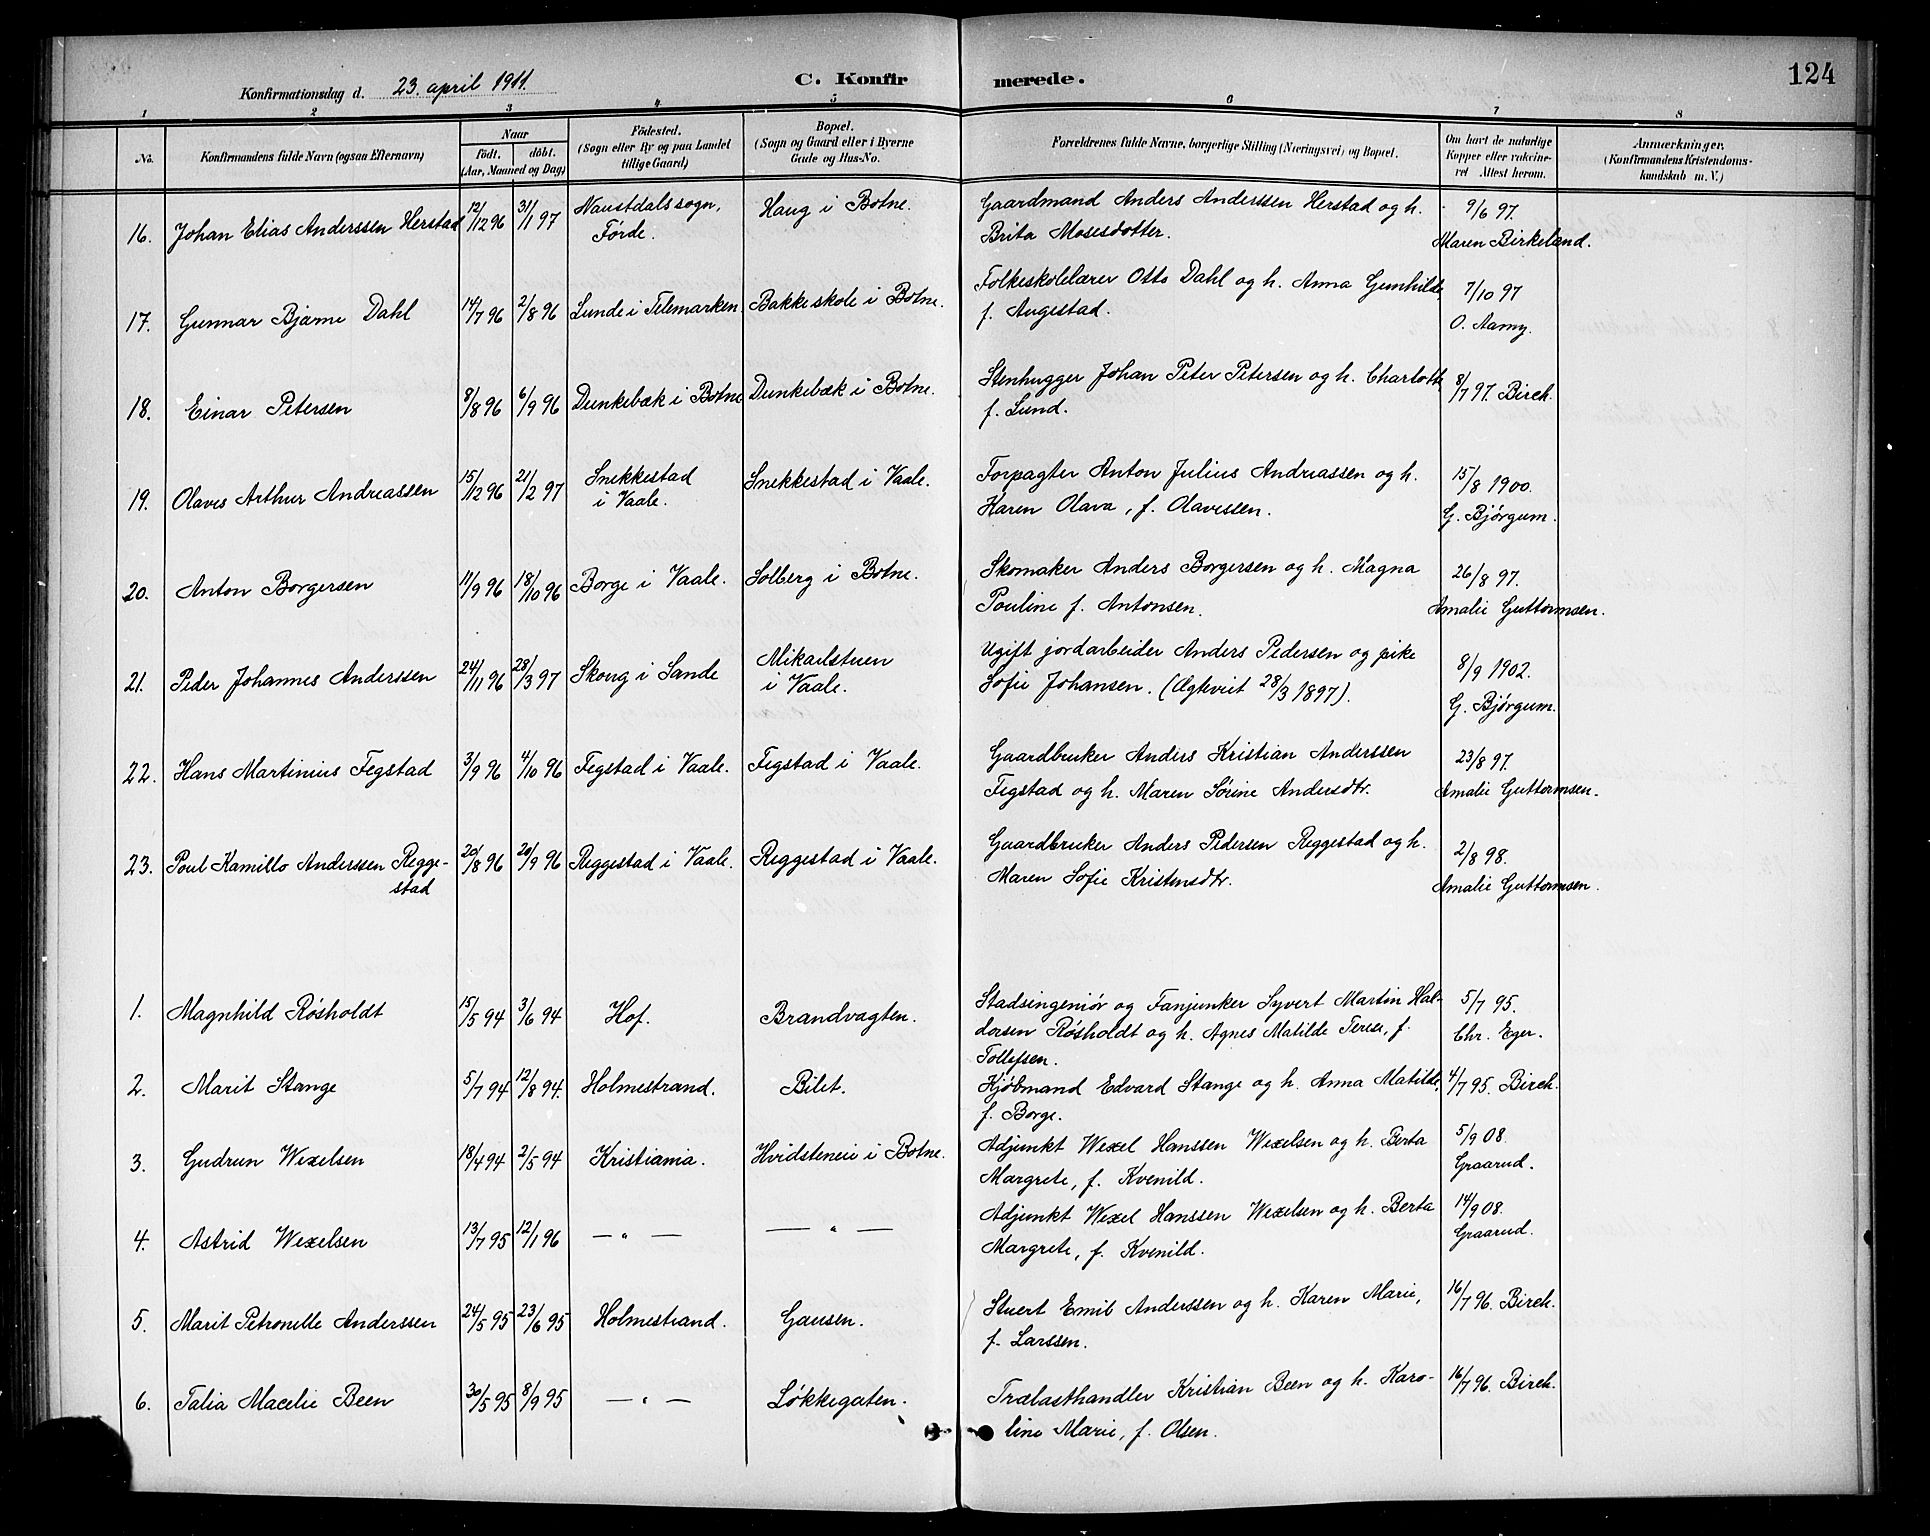 124
Konfirmationsdag d. 23. april 1911. C. Konfir merede.
1 2 3 4 5 6 7 8
No. Konfirmandens fulde Navn (ogsaa Efternavn) Naar födt. döbt. (Aar, Maaned og Dag) Födested. (Sogn eller By og paa Landet tillige Gaard) Bopæl. (Sogn og Gaard eller i Byerne Gade og Hus-No. Forældrenes fulde Navne, borgerlige Stilling (Næringsvei) og Bopæl. Om havt de naturlige Kopper eller vakcineret Attest herom. Anmærkninger. (Konfirmandens Kristendomskundskab m. V.)
16. Johan Elias Anderssen Herstad 12/12 96 31/1 97 Naustdals sogn, Førde. Haug i Botne. Gaardmand Anders Anderssen Herstad og h. Brita Mosesdotter. 9/6 97. Maren Birkeland.
17. Gunnar Bjarne Dahl 14/7 96 2/8 96 Lunde i Telemarken Bakke skole i Botne. Folkeskolelærer Otto Dahl og h. Anna Gunhilde, f. Augestad. 7/10 97 O. Aamy.
18. Einar Petersen 8/8 96 6/9 96 Dunkebæk i Botne Dunkebæk i Botne. Stenhugger Johan Peter Petersen og h. Charlotte f. Lund. 8/7 97. Birch.
19. Olaves Arthur Andreassen 15/12 96 21/2 97 Snekkestad i Vaale. Snekkestad i Vaale. Forpagter Anton Julius Andreassen og h. Karen Olava, f. Olavessen. 15/8 1900. G. Bjørgum.
20. Anton Borgersen 11/9 96 18/10 96 Borge i Vaale. Solberg i Botne. Skomaker Anders Borgersen og h. Magna Pouline f. Antonsen. 26/8 97. Amalie Guttormsen.
21. Peder Johannes Anderssen 24/11 96 28/3 97 Skoug i Sande Mikaelstuen i Vaale. Ugift jordarbeider Anders Pedersen og pike Sofie Johansen. (Ægteviet 28/3 1897). 8/9 1902. G. Bjørgum.
22. Hans Martinius Fegstad 3/9 96 4/10 96 Fegstad i Vaale. Fegstad i Vaale. Gaardbruker Anders Kristian Anderssen Fegstad og h. Maren Sørine Andersdtr. 23/8 97. Amalie Guttormsen.
23. Poul Kamillo Anderssen Reggestad 20/8 96 20/9 96 Reggestad i Vaale. Reggestad i Vaale. Gaardbruker Anders Pedersen Reggestad og h. Maren Sofie Kristensdtr. 2/8 98. Amalie Guttormsen.
1. Magnhild Røsholdt 15/5 94 3/6 94 Hof. Brandvagten. Stadsingeniør og Fanjunker Syvert Martin Haldorsen Røsholdt og h. Agnes Matilde Terese, f. Tollefsen. 5/7 95. Chr. Eger.
2. Marit Stange 5/7 94 12/8 94. Holmestrand. Bilet. Kjøbmand Edvard Stange og h. Anna Matilde, f. Borge. 4/7 95. Birch.
3. Gudrun Wexelsen 18/4 94 2/5 94 Kristiania. Hvidsteneie i Botne. Adjunkt Wexel Hanssen Wexelsen og h. Berta Margrete, f. Kvenild. 5/9 08. Graarud.
4. Astrid Wexelsen 13/7 95 12/1 96 — " — — " — Adjunkt Wexel Hanssen Wexelsen og h. Berta Margrete, f. Kvenild. 14/9 08. Graarud.
5. Marit Petronelle Anderssen 24/5 95 23/6 95 Holmestrand. Gausen. Stuert Emil Anderssen og h. Karen Marie, f. Larssen. 16/7 96. Birch.
6. Talia Macelie Been 30/5 95 8/9 95 — " — Løkkegaten. Trælasthandler Kristian Been og h. Karoline Marie, f. Olsen. 16/7 96. Birch.